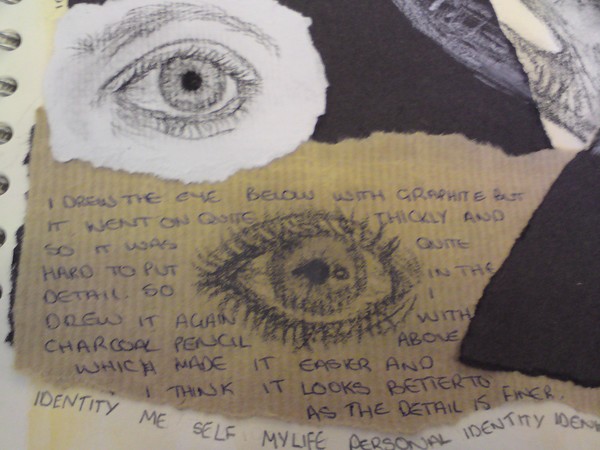 I DREW THE EYE BELOW WITH GRAPHITE BUT
IT WENT ON QUITE THICKLY AND
SO IT WAS QUITE
HARD TO PUT IN THE
DETAIL. SO I
DREW IT AGAIN WITH
CHARCOAL PENCIL ABOVE
WHICH MADE IT EASIER AND
I THINK IT LOOKS BETTER TO
AS THE DETAIL IS FINER.
IDENTITY ME SELF MY LIFE PERSONAL IDENTITY IDEN